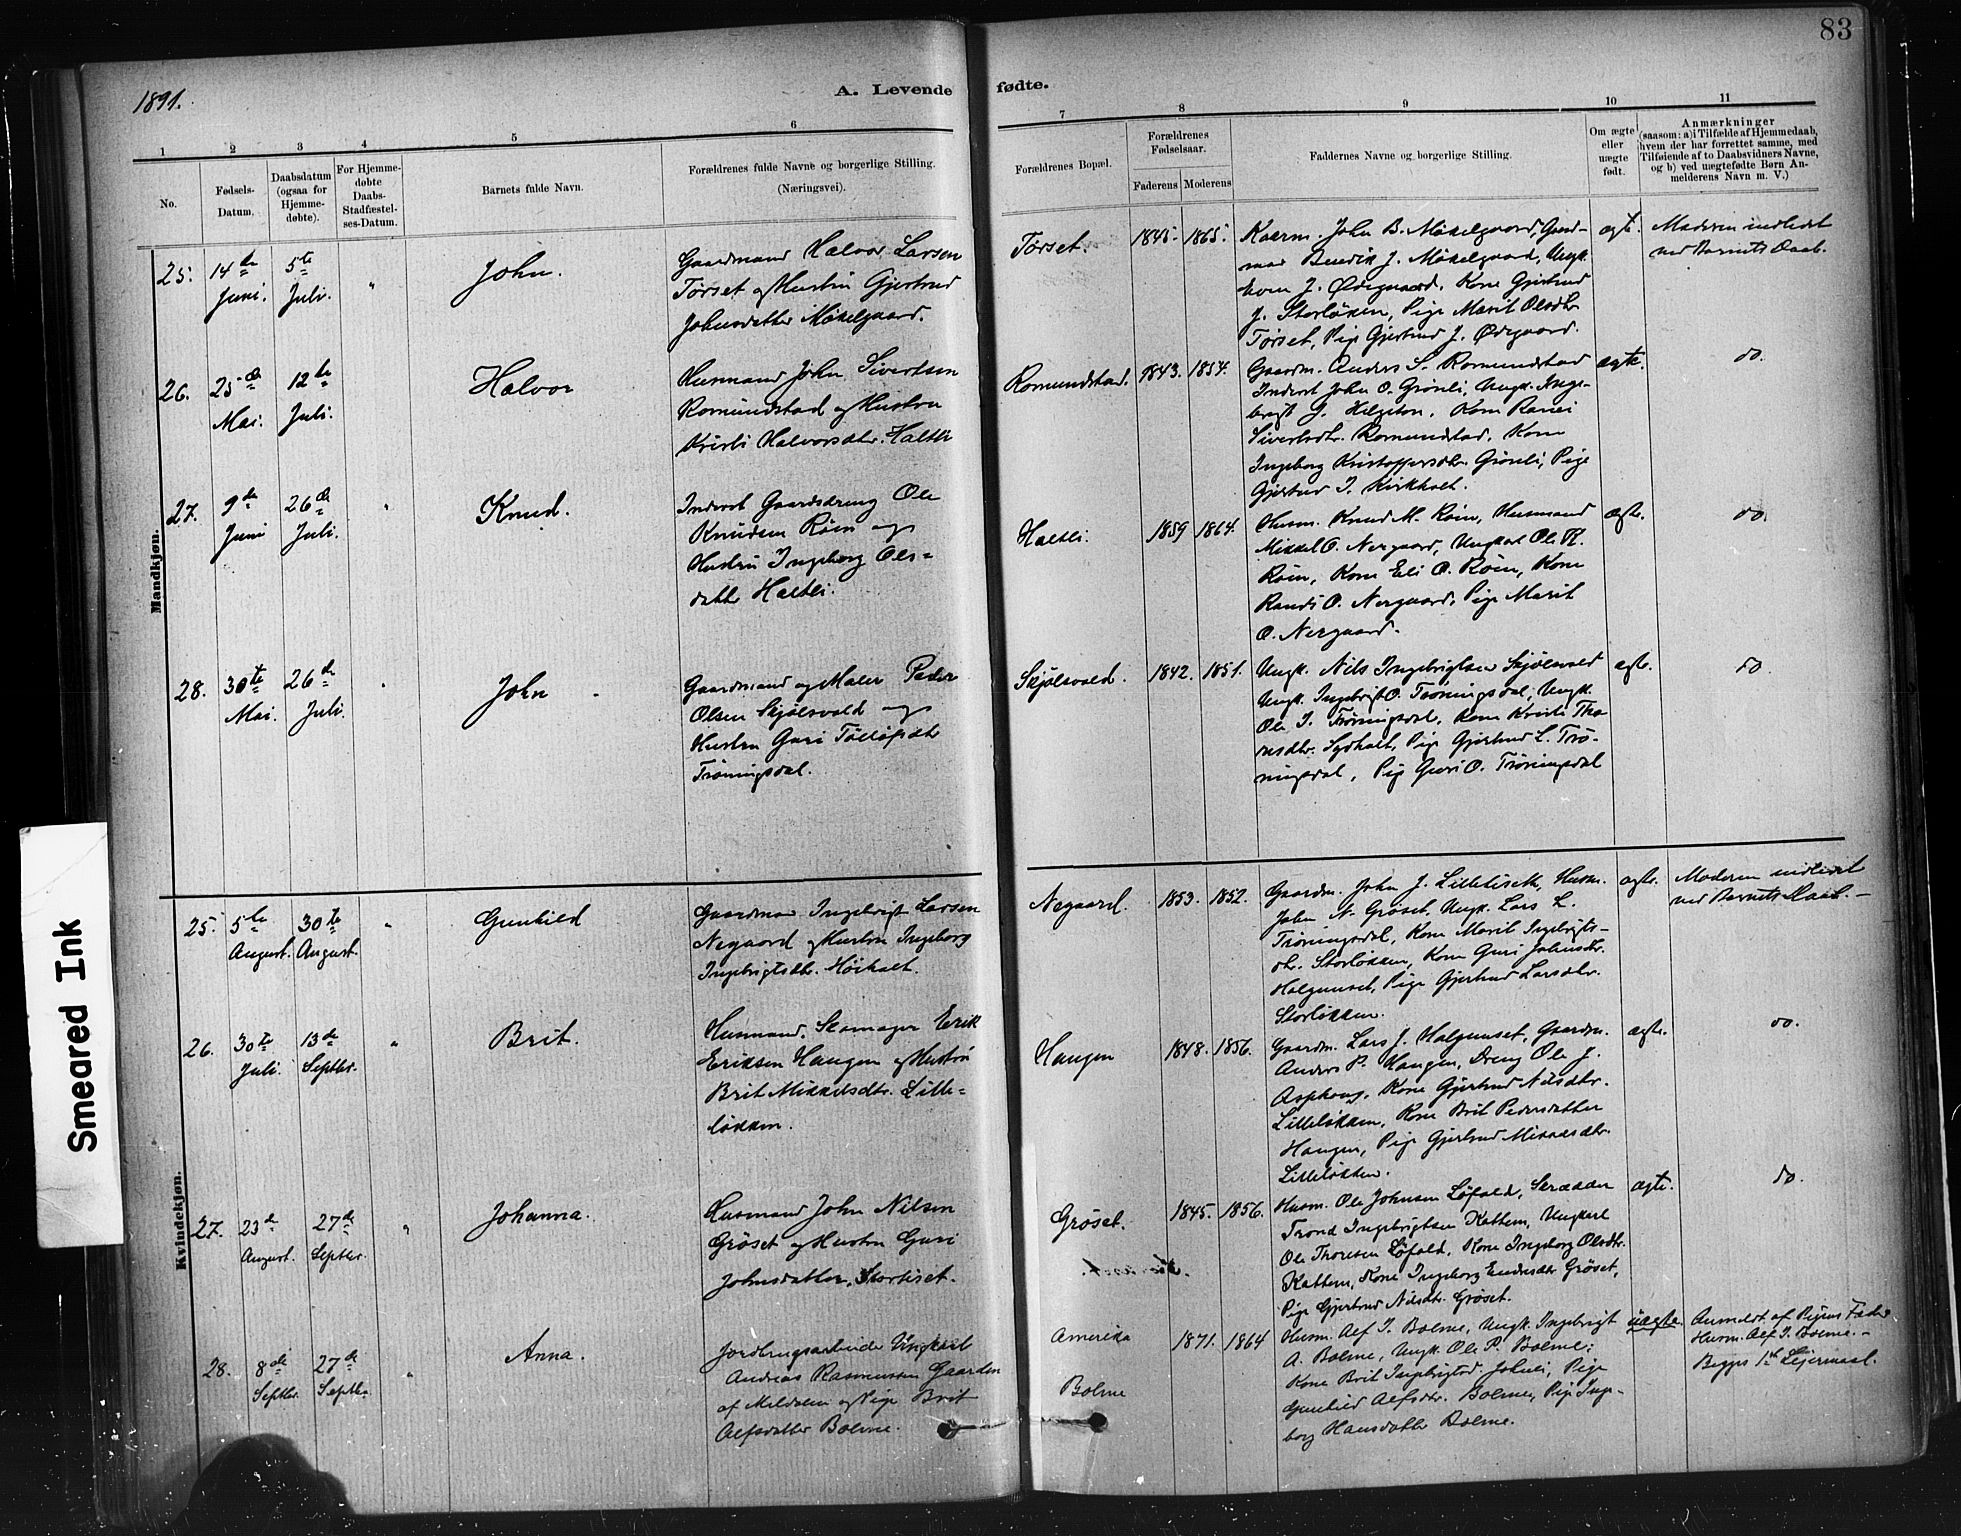 83
1891.
A. Levende
fødte.
1 2 3 4 5 6
7 8 9 10 11
No.
Fødsels-
Datum.
Daabsdatum
(ogsaa for
Hjemme-
døbte).
For Hjemme-
døbte
Daabs-
Stadfæstel-
ses-Datum.
Barnets fulde Navn.
Forældrenes fulde Navne og borgerlige Stilling.
(Næringsvei).
Forældrenes Bopæl.
Forældrenes
Fødselsaar.
Faderens Moderens
Faddernes Navne og borgerlige Stilling.
Om ægte
eller
uægte
født.
Anmærkninger
(saasom: a) i Tilfælde af Hjemmedaab,
hvem der har forrettet samme, med
Tilføiende af to Daabsvidners Navne,
og b) ved uægtefødte Børn An-
melderens Navn m. V.)
Mandkjøn.
25. 14de Juni. 5te Juli. "
John.
Gaardmand Halvor Larsen
Tørset og Hustru Gjertrud
Johnsdatter Mækelgaard.
Tørset.
1845. 1865.
John B. Mækelgaard, Gaard-
mand Bendik J. Mækelgaard, Ungk.
Even J. Ødegaard, Kone Gjertrud
J. Storløkken, Pige Marit Olsdtr.
Tørset, Pige Gjertrud J. Ødegaard.
ægte.
Moderen indledet
ved Barnets Daab.
26. 25de Mai. 12te Juli.
Halvor
Husmand John Sivertsen
Romundstad og Hustru
Kirsti Halvorsdtr. Haltli
Romundstad.
1843. 1854.
Gaardm. Anders S. Romundstad
Inderst John O. Grønli, Ungk. Inge-
brigt J. Kone Ranei
Sivertsdtr. Romundstad, Kone
Ingeborg Kristoffersdtr. Grønli, Pige
Gjertrud I. Kirkholt.
ægte.
do.
27. 9de Juni 26de Juli. "
Knud.
Inderst Gaardsdreng Ole
Knudsen Røen og
Hustru Ingeborg Ols=
datter Haltli.
Haltli.
1859 1864.
Husm. Knud M. Røen, Husmand
Mikkel O. Nergaard, Ungkarl Ole K.
Røen, Kone Eli O. Røen, Kone
Randi O. Nergaard, Pige Marit
O. Nergaard.
ægte.
do.
28. 30te Mai. 26de Juli. "
John
Gaardmand og Maler Peder
Olsen Skjølsvold og
Hustru Guri Tølløfsdtr
Trøningsdal.
Skjølsvold.
1842. 1851.
Ungk. Nils Ingebrigtsen Skjølsvold
Ungk. Ingebrigt O. Trøningsdal, Ungk.
Ole I. Trøningsdal, Kone Kirsti Tho-
masdtr. Sydhalt, Pige Gjertrud L. Trø-
ningsdal, Pige Guri O. Trøningsdal
ægte.
do.
Kvindekjøn.
25. 5te August. 30te August. "
Gunhild
Gaardman Ingebrigt Larsen
Negaard og Hustru Ingeborg
Ingebrigtsdtr. Høihalt.
Negaard.
1853. 1852.
Gaardm. John J. Lilletiseth, Husm.
John N. Grøset, Ungk. Lars L.
Trøningsdal, Kone Marit Ingebrigts-
dtr. Storløkken, Kone Guri Johnsdtr.
Halgunset, Pige Gjertrud Larsdtr.
Storløkken.
ægte.
Moderen indledet
ved Barnets Daab.-
26. 30te Juli. 13de Septbr. "
Brit.
Husmand, Skomager Erik
Eriksen Haugen og Hustru
Brit Mikkelsdtr. Lille-
løkken.
Haugen
1848. 1856.
Gaardm. Lars J. Halgunset, Gaardm.
Anders P. Haugen, Dreng Ole J.
Asphaug, Kone Gjertrud Nilsdtr.
Lilleløkken, Kone Brit Pedersdatter
Haugen, Pige Gjertrud Mikkelsdtr.
Lilleløkken.
ægte.
do.
27. 23de August. 27de Septbr. "
Johanna.
Husmand John Nilsen
Grøset og Hustru Guri
Johnsdatter, Stortiset.
Grøset.
1845. 1856.
Husm. Ole Johnsen Løfald, Skrædder
Trond Ingebrigtsen Kattem, Ungkarl
Ole Thoresen Løfald, Kone Ingeborg Olsdtr.
Kattem, Kone Ingeborg Endresdtr Grøset,
Pige Gjertrud Nilsdtr. Grøset.
ægte.
do.
28. 8de Septbr. 27de Septbr. "
Anna.
Jordbrugsarbeider Ungkarl
Andreas Rasmussen Gaarden
af Meldalen og Pige Brit
Alfsdatter Bolme.
Amerika
Bolme
1871. 1864
Husm. Alf I. Bolme, Ungk. Ingebrigt
A. Bolme, Ungk. Ole P. Bolme;
Kone Brit Ingebrigtsd Pige
Gunhild Alfsdtr. Bolme, Pige Inge-
borg Hansdatter Bolme.
uægte.
Anmeldt af Pigens Fader
Husm. Alf I. Bolme.-
Begges 1ste Leiermaal.
Smeared Ink